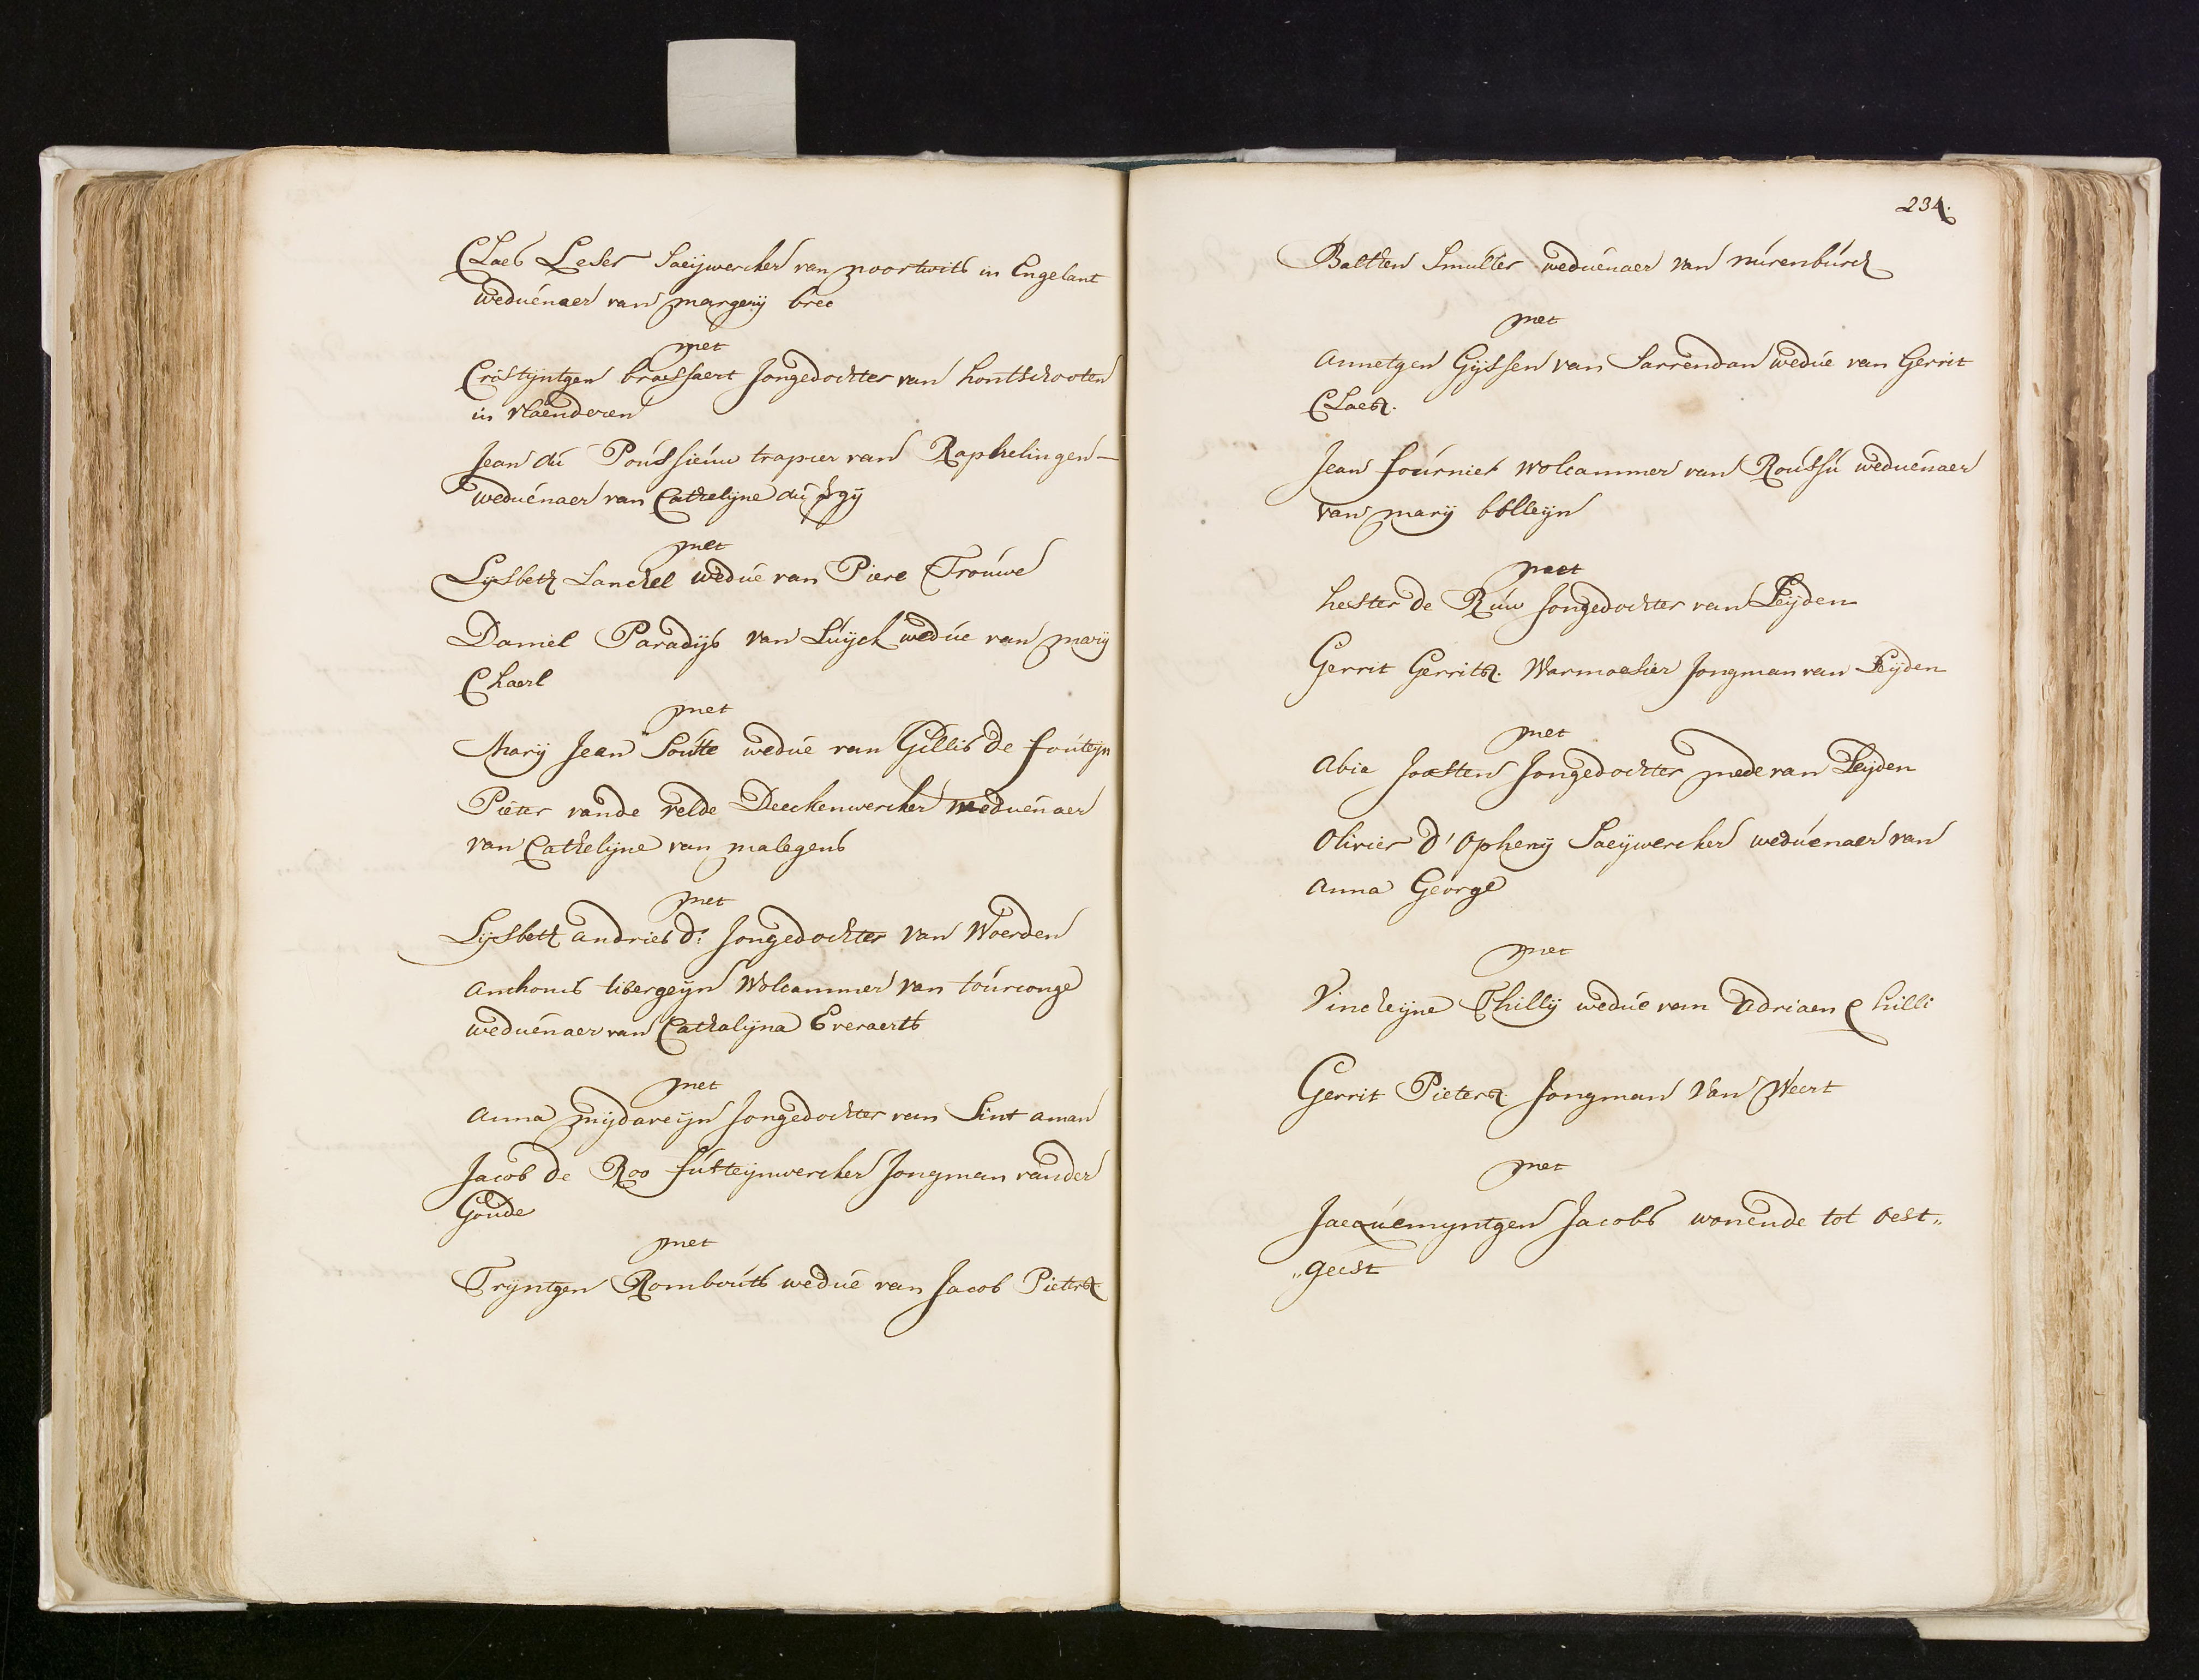 Claes Leser Saeijwercker van noortwits in Engelant
weduenaer van margerij bree
met
Cristijntgen braessaert Jongedochter van hontschooten
in vlaenderen
Jean du Poussieuw trapier van Raphelingen
weduenaer van Cathelijne du
met
Lijsbeth Lanchel wedue van Piere Trouwe
Daniel Paradijs van Luijck wedue van marij
Chaerl
met
Marij Jean Soutte wedue van Gillis de fonteijn
Pieter vande velde Deeckenwercker weduenaer
van Cathelijne van malegens
met
Lijsbeth andries dr. Jongedochter van Woerden
Anthonis libergeijn Wolcammer van tourconge
weduenaer van Cathalijna Everaerts
met
Anna mijdaveijn Jongedochter van Sint aman
Jacob de Roo fusteijnwercker Jongman vander
Goude
met
Trijntgen Rombouts wedue van Jacob Pietersz.
234.
Baltten Smulter weduenaer van nurenburch
met
Annetgen Gijssen van Sarrendan wedue van Gerrit
Claesz.
Jean fournier wolcammer van Roussu weduenaer
van marij
met
hester de Ruw Jongedochter van Leijden
Gerrit Gerritsz. Warmoesier Jongman van Leijden
met
Abia Joosten Jongedochter mede van Leijden
Olivier d'Opheny Saeijwercker weduenaer van
Anna George
met
Vincheijne Thillij wedue van Adriaen Chilli
Gerrit Pietersz. Jongman van Weert
met
Jacquemyntgen Jacobs wonende tot oest„
„geest